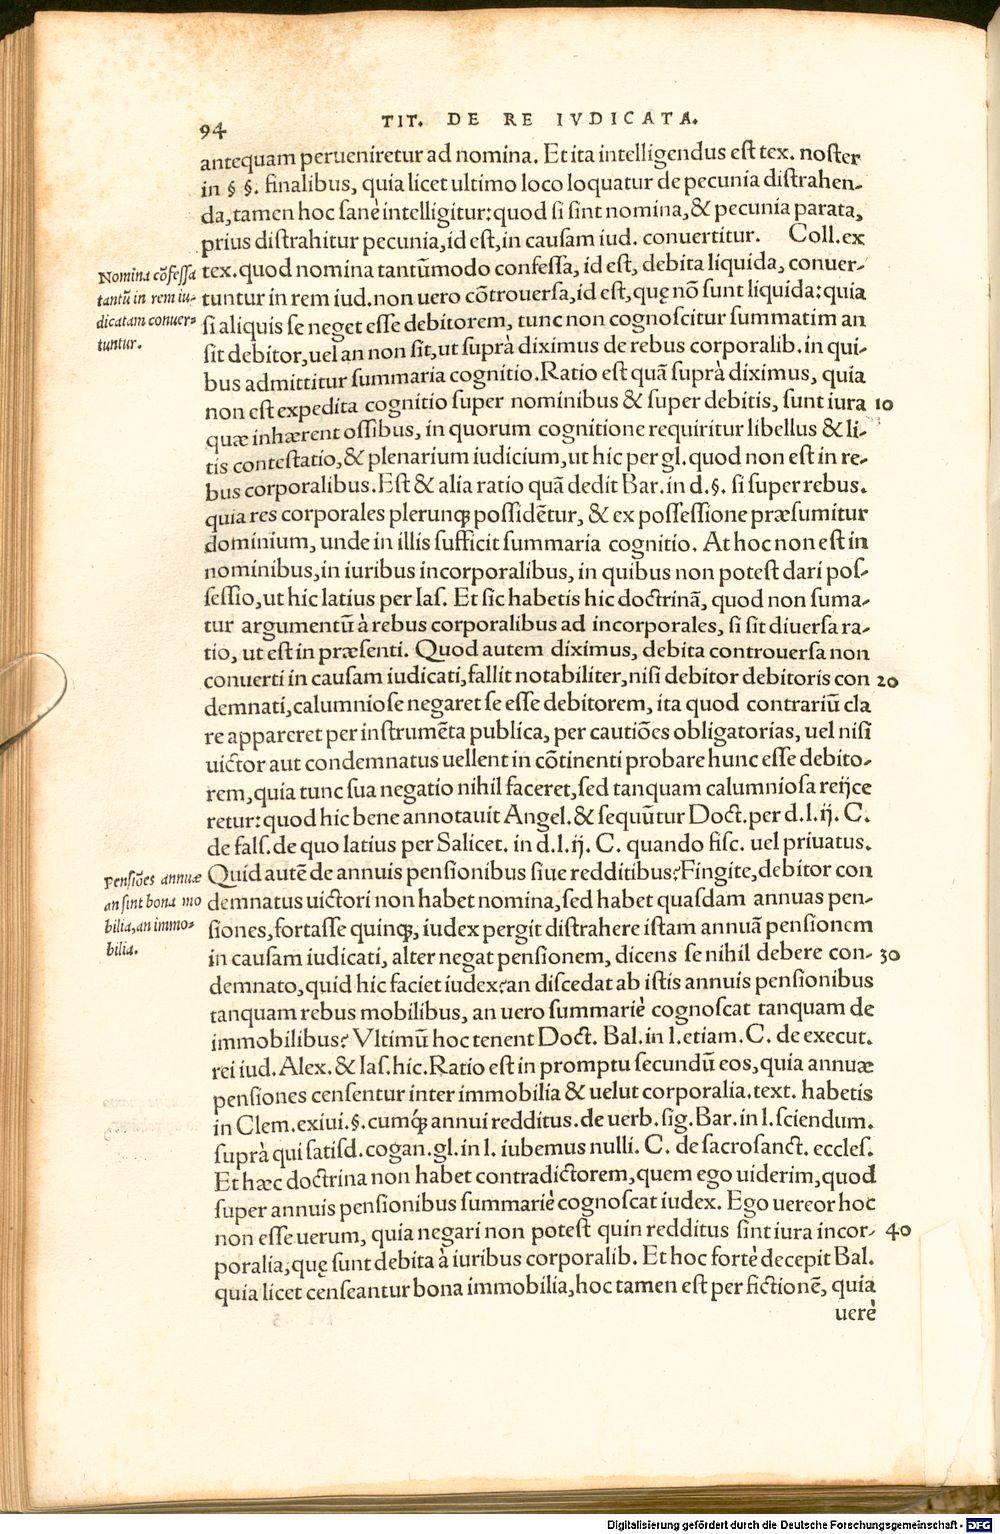 94
TIT. DE RE IVDICATA.
antequam perueniretur ad nomina. Et ita intelligendus est tex. noster
in § §. finalibus, quia licet ultimo loco loquatur de pecunia distrahen-
da, tamen hoc sanè intelligitur: quod si sint nomina, & pecunia parata,
prius distrahitur pecunia, id est, in causam iud. conuertitur. Coll. ex
tex. quod nomina tantũmodo confessa, id est, debita liquida, conuer-
tuntur in rem iud. non uero cõtrouersa, id est, quę nõ sunt liquida: quia
si aliquis se neget esse debitorem, tunc non cognoscitur summatim an
sit debitor, uel an non sit, ut suprà diximus de rebus corporalib. in qui-
bus admittitur summaria cognitio. Ratio est quã suprà diximus, quia
non est expedita cognitio super nominibus & super debitis, sunt iura 10
quæ inhærent ossibus, in quorum cognitione requiritur libellus & li-
tis contestatio, & plenarium iudicium, ut hic per gl. quod non est in re-
bus corporalibus. Est & alia ratio quã dedit Bar. in d. §. si super rebus.
quia res corporales plerunq́; possidẽtur, & ex possessione præsumitur
dominium, unde in illis sufficit summaria cognitio. At hoc non est in
nominibus, in iuribus incorporalibus, in quibus non potest dari pos-
sessio, ut hic latius per Ias. Et sic habetis hic doctrinã, quod non suma-
tur argumentũ à rebus corporalibus ad incorporales, si sit diuersa ra-
tio, ut est in præsenti. Quod autem diximus, debita controuersa non
conuerti in causam iudicati, fallit notabiliter, nisi debitor debitoris con 20
demnati, calumniose negaret se esse debitorem, ita quod contrariũ cla
re appareret per instrumẽta publica, per cautiões obligatorias, uel nisi
uictor aut condemnatus uellent in cõtinenti probare hunc esse debito-
rem, quia tunc sua negatio nihil faceret, sed tanquam calumniosa reijce
retur: quod hic bene annotauit Angel. & sequũtur Doct. per d. l. ij. C.
de fals. de quo latius per Salicet. in d. l. ij. C. quando fisc. uel priuatus.
Quid autẽ de annuis pensionibus siue redditibus? Fingite, debitor con
demnatus uictori non habet nomina, sed habet quasdam annuas pen-
siones, fortasse quinq;, iudex pergit distrahere istam annuã pensionem
in causam iudicati, alter negat pensionem, dicens se nihil debere con- 30
demnato, quid hic faciet iudex? an discedat ab istis annuis pensionibus
tanquam rebus mobilibus, an uero summariè cognoscat tanquam de
immobilibus? Vltimũ hoc tenent Doct. Bal. in l. etiam. C. de execut.
rei iud. Alex. & Ias. hic. Ratio est in promptu secundũ eos, quia annuæ
pensiones censentur inter immobilia & uelut corporalia. text. habetis
in Clem. exiui. §. cumq́; annui redditus. de uerb. sig. Bar. in l. sciendum.
suprà qui satisd. cogan. gl. in l. iubemus nulli. C. de sacrosanct. eccles.
Et hæc doctrina non habet contradictorem, quem ego uiderim, quod
super annuis pensionibus summariè cognoscat iudex. Ego uereor hoc
non esse uerum, quia negari non potest quin redditus sint iura incor- 40
poralia, quę sunt debita à iuribus corporalib. Et hoc fortè decepit Bal.
quia licet censeantur bona immobilia, hoc tamen est per fictionẽ, quia
uerè
Nomina cõfessa
tantũ in rem iu-
dicatam conuer-
tuntur.
Pensiões annuæ
an sint bona mo
bilia, an immo-
bilia.
Digitalisierung gefördert durch die Deutsche Forschungsgemeinschaft - DFG